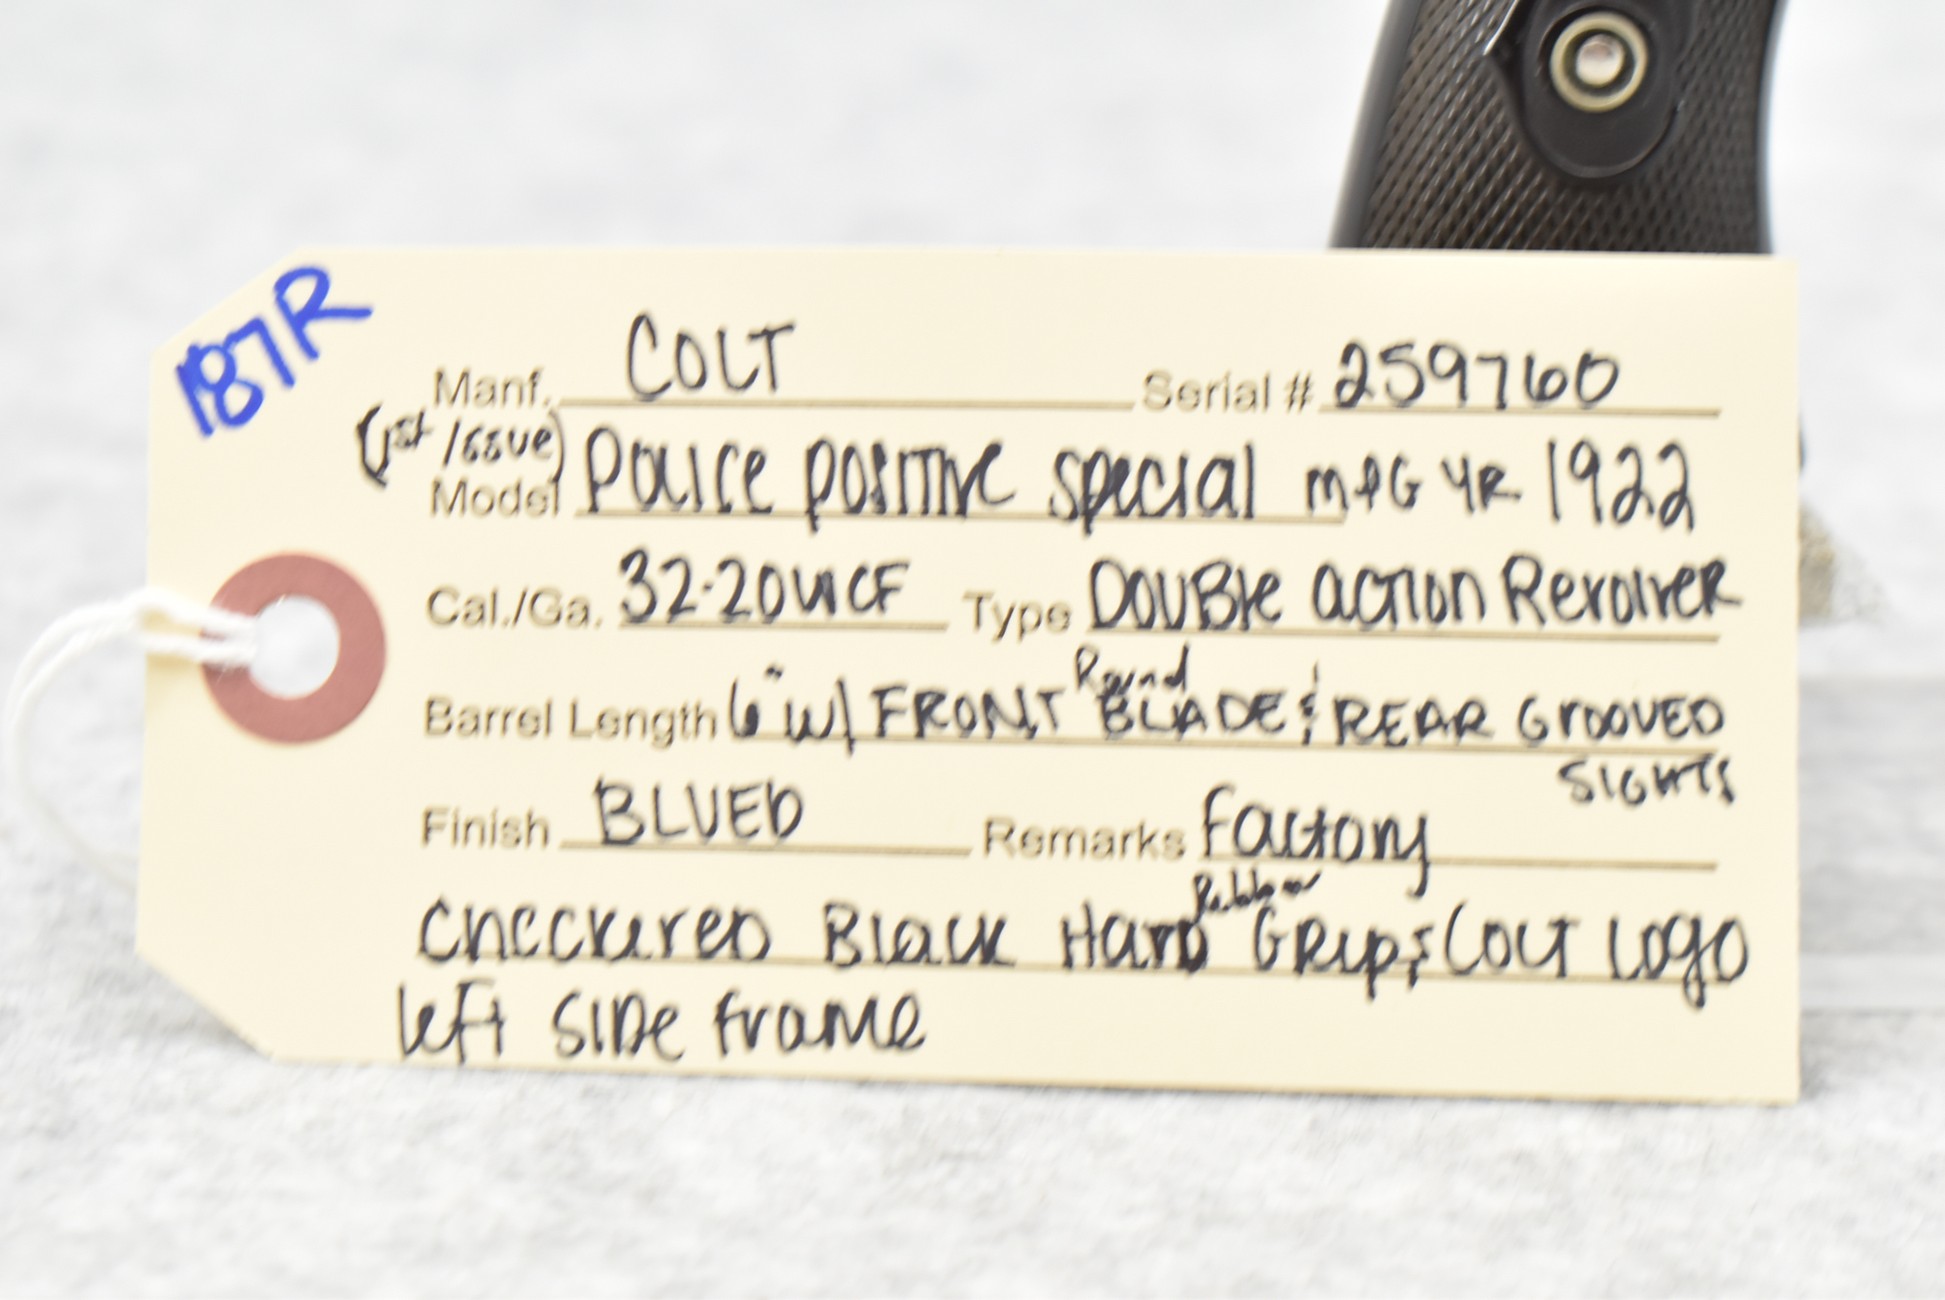 187R
Manf. COLT Serial # 259760
(1st /issue)
Model Police Positive Special MFG YR 1922
Cal./Ga. 32-20 WCF Type Double Action Revolver
Round
Barrel Length 6" w/ FRONT BLADE & REAR GROOVED
SIGHTS
Finish BLUED Remarks Factory
Rubber
Checkered Black Hard Grips Colt Logo
left side frame